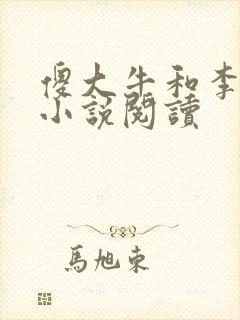 傻大牛和李
小說閱讀
馬旭東